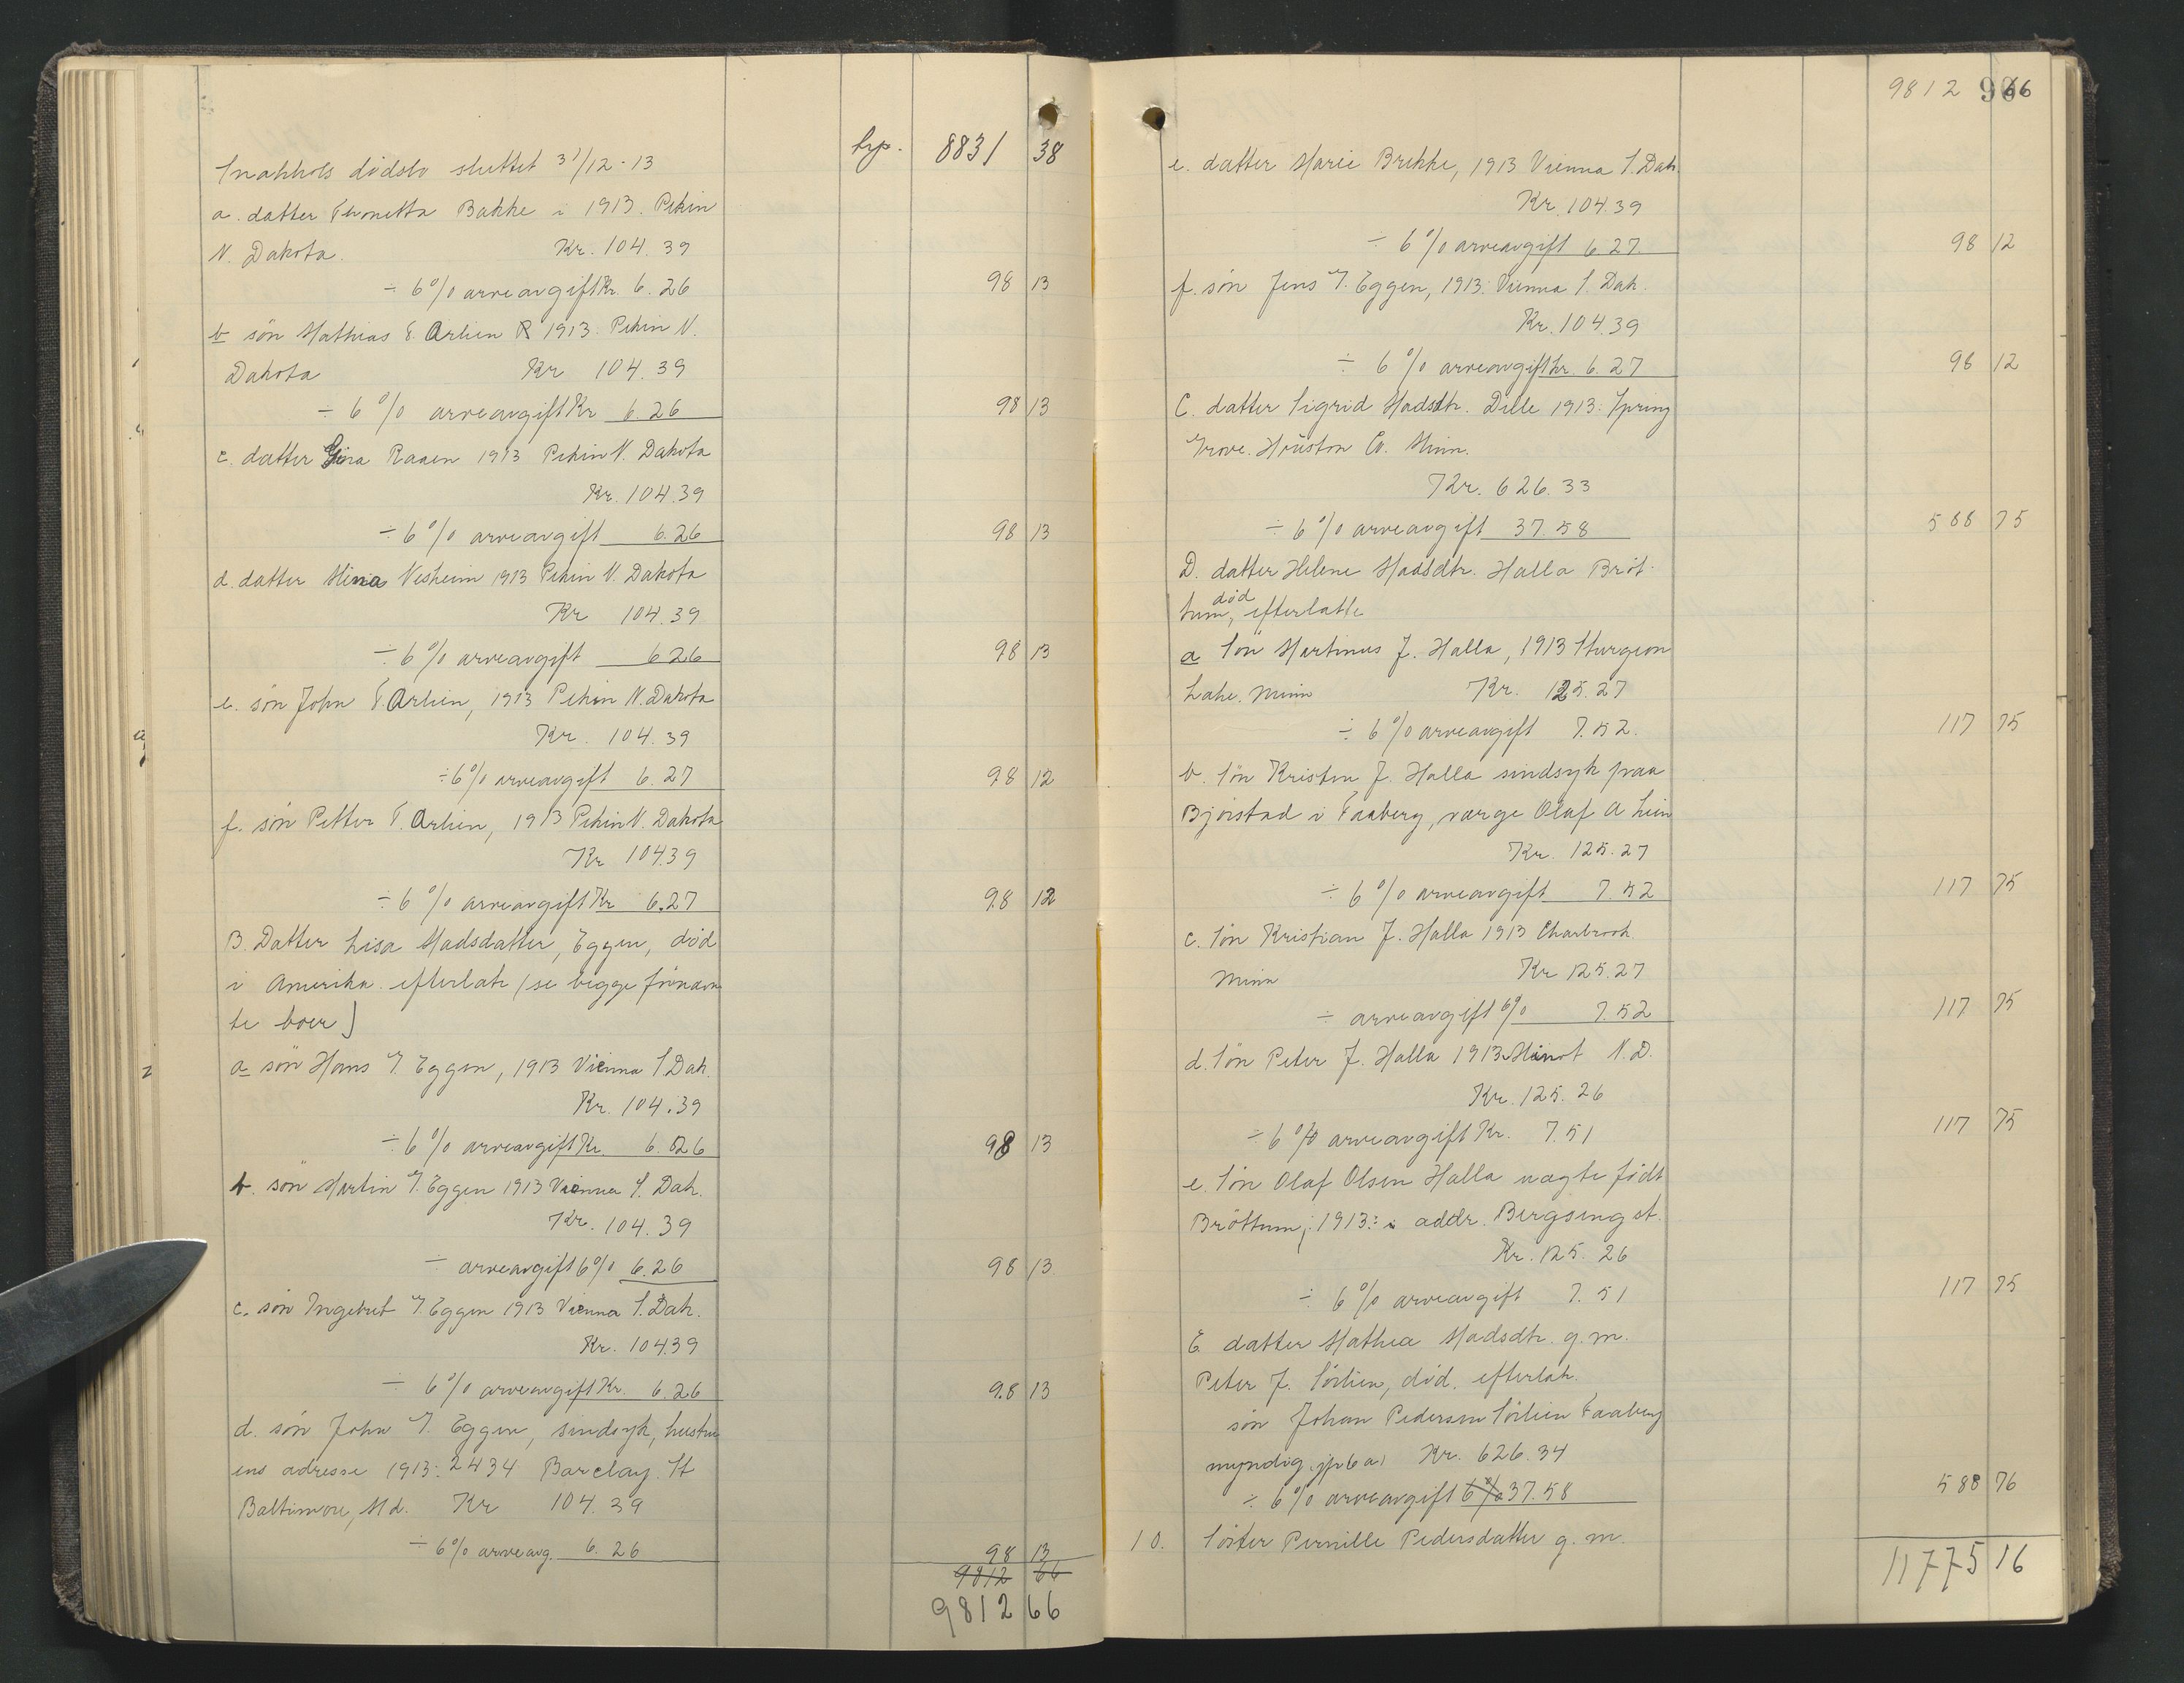 trp. 8831 38
dødsbo sluttet 31/12-13
a. datter Bakke i 1913. Pekin
N. Dakota. Kr. 104.39
÷ 6% arveavgift Kr. 6.26 98 13
b søn Mathias T. Arlien 1913. Pekin N.
Dakota Kr 104.39
÷ 6% arveavgift Kr 6.26 98 13
c. datter Gina Raaen 1913 Pekin N. Dakota
Kr. 104.39
÷ 6% arveavgift 6.26 98 13
d. datter Mina Vesheim 1913 Pekin N. Dakota
Kr 104.39
÷ 6% arveavgift 6 26 98 13
e. søn John T. Arlien, 1913 Pekin N. Dakota
Kr. 104.39
÷ 6% arveavgift 6.27 98 12
f. søn Petter T. Arlien, 1913 Pekin N. Dakota
Kr 104.39
÷ 6% arveavgift Kr 6.27 98 12
B. Datter Lisa Madsdatter, Eggen, død
i Amerika. efterlatr (se begge forann
te boer)
a søn Hans T. Eggen, 1913 Vienna S. Dak.
Kr. 104.39
÷ 6% arveavgift Kr. 6.26 98 13
b. søn Martin T. Eggen 1913 Vienna S. Dak.
Kr. 104.39
÷ arveavgift 6% 6.26 98 13
c. søn Ingebret T. Eggen 1913 Vienna S. Dak.
Kr. 104.39
÷ 6% arveavgift Kr. 6.26 98 13
d. søn John T. Eggen, sindsyk, hustru
ens adresse 1913: 2434 Barclay. St
Baltimore, Md. Kr 104.39
÷ 6% arveavg. 6.26 98 13
9812 66
9812 66
9812 66
e. datter Marie Brekke, 1913 Vienna S. Dak.
Kr. 104.39
÷ 6% arveavgift 6.27. 98 12
f. søn Jens T. Eggen, 1913: Vienna S. Dak.
Kr. 104.39
÷ 6% arveavgift kr. 6.27 98 12
C. datter Sigrid Madsdtr. Dille 1913: Spring
Grove. Hruston Co. Minn.
Kr. 626.33
÷ 6% arveavgift 37.58 588 75
D. datter Helene Madsdtr. Halla Brøt-
død
tum, efterlatte
a Søn Martinus J. Halla, 1913 Sturgeon
Lake. Minn Kr. 125.27
÷ 6% arveavgift 7.52. 117 75
b. Søn Kristen J. Halla sindsyk paa
Bjørstad i Faaberg, værge Olaf A Lien
Kr. 125.27
÷ 6% arveavgift 7.52 117 75
c. Søn Kristian J. Halla 1913
Minn Kr 125.27
÷ arveavgift 6% 7.52 117 75
d. Søn Peter J. Halla 1913 Minot N.D.
Kr. 125.26
÷ 6% arveavgift Kr. 7.51 117 75
e. Søn Olaf Olsen Halla uægte født
Brøttum, 1913: addr. Bergseng st.
Kr. 125.26
÷ 6% arveavgift 7.51 117 75
E datter Mathea Madsdtr. g.m.
Peter J. Sørlien, død, efterlatr.
søn Johan Pedersen Sørlien Faaberg
myndig. Kr. 626.34
÷ 6% arveavgift 6% 37.58 588 76
10. Søster Pernille Pedersdatter g.m.
11775 16